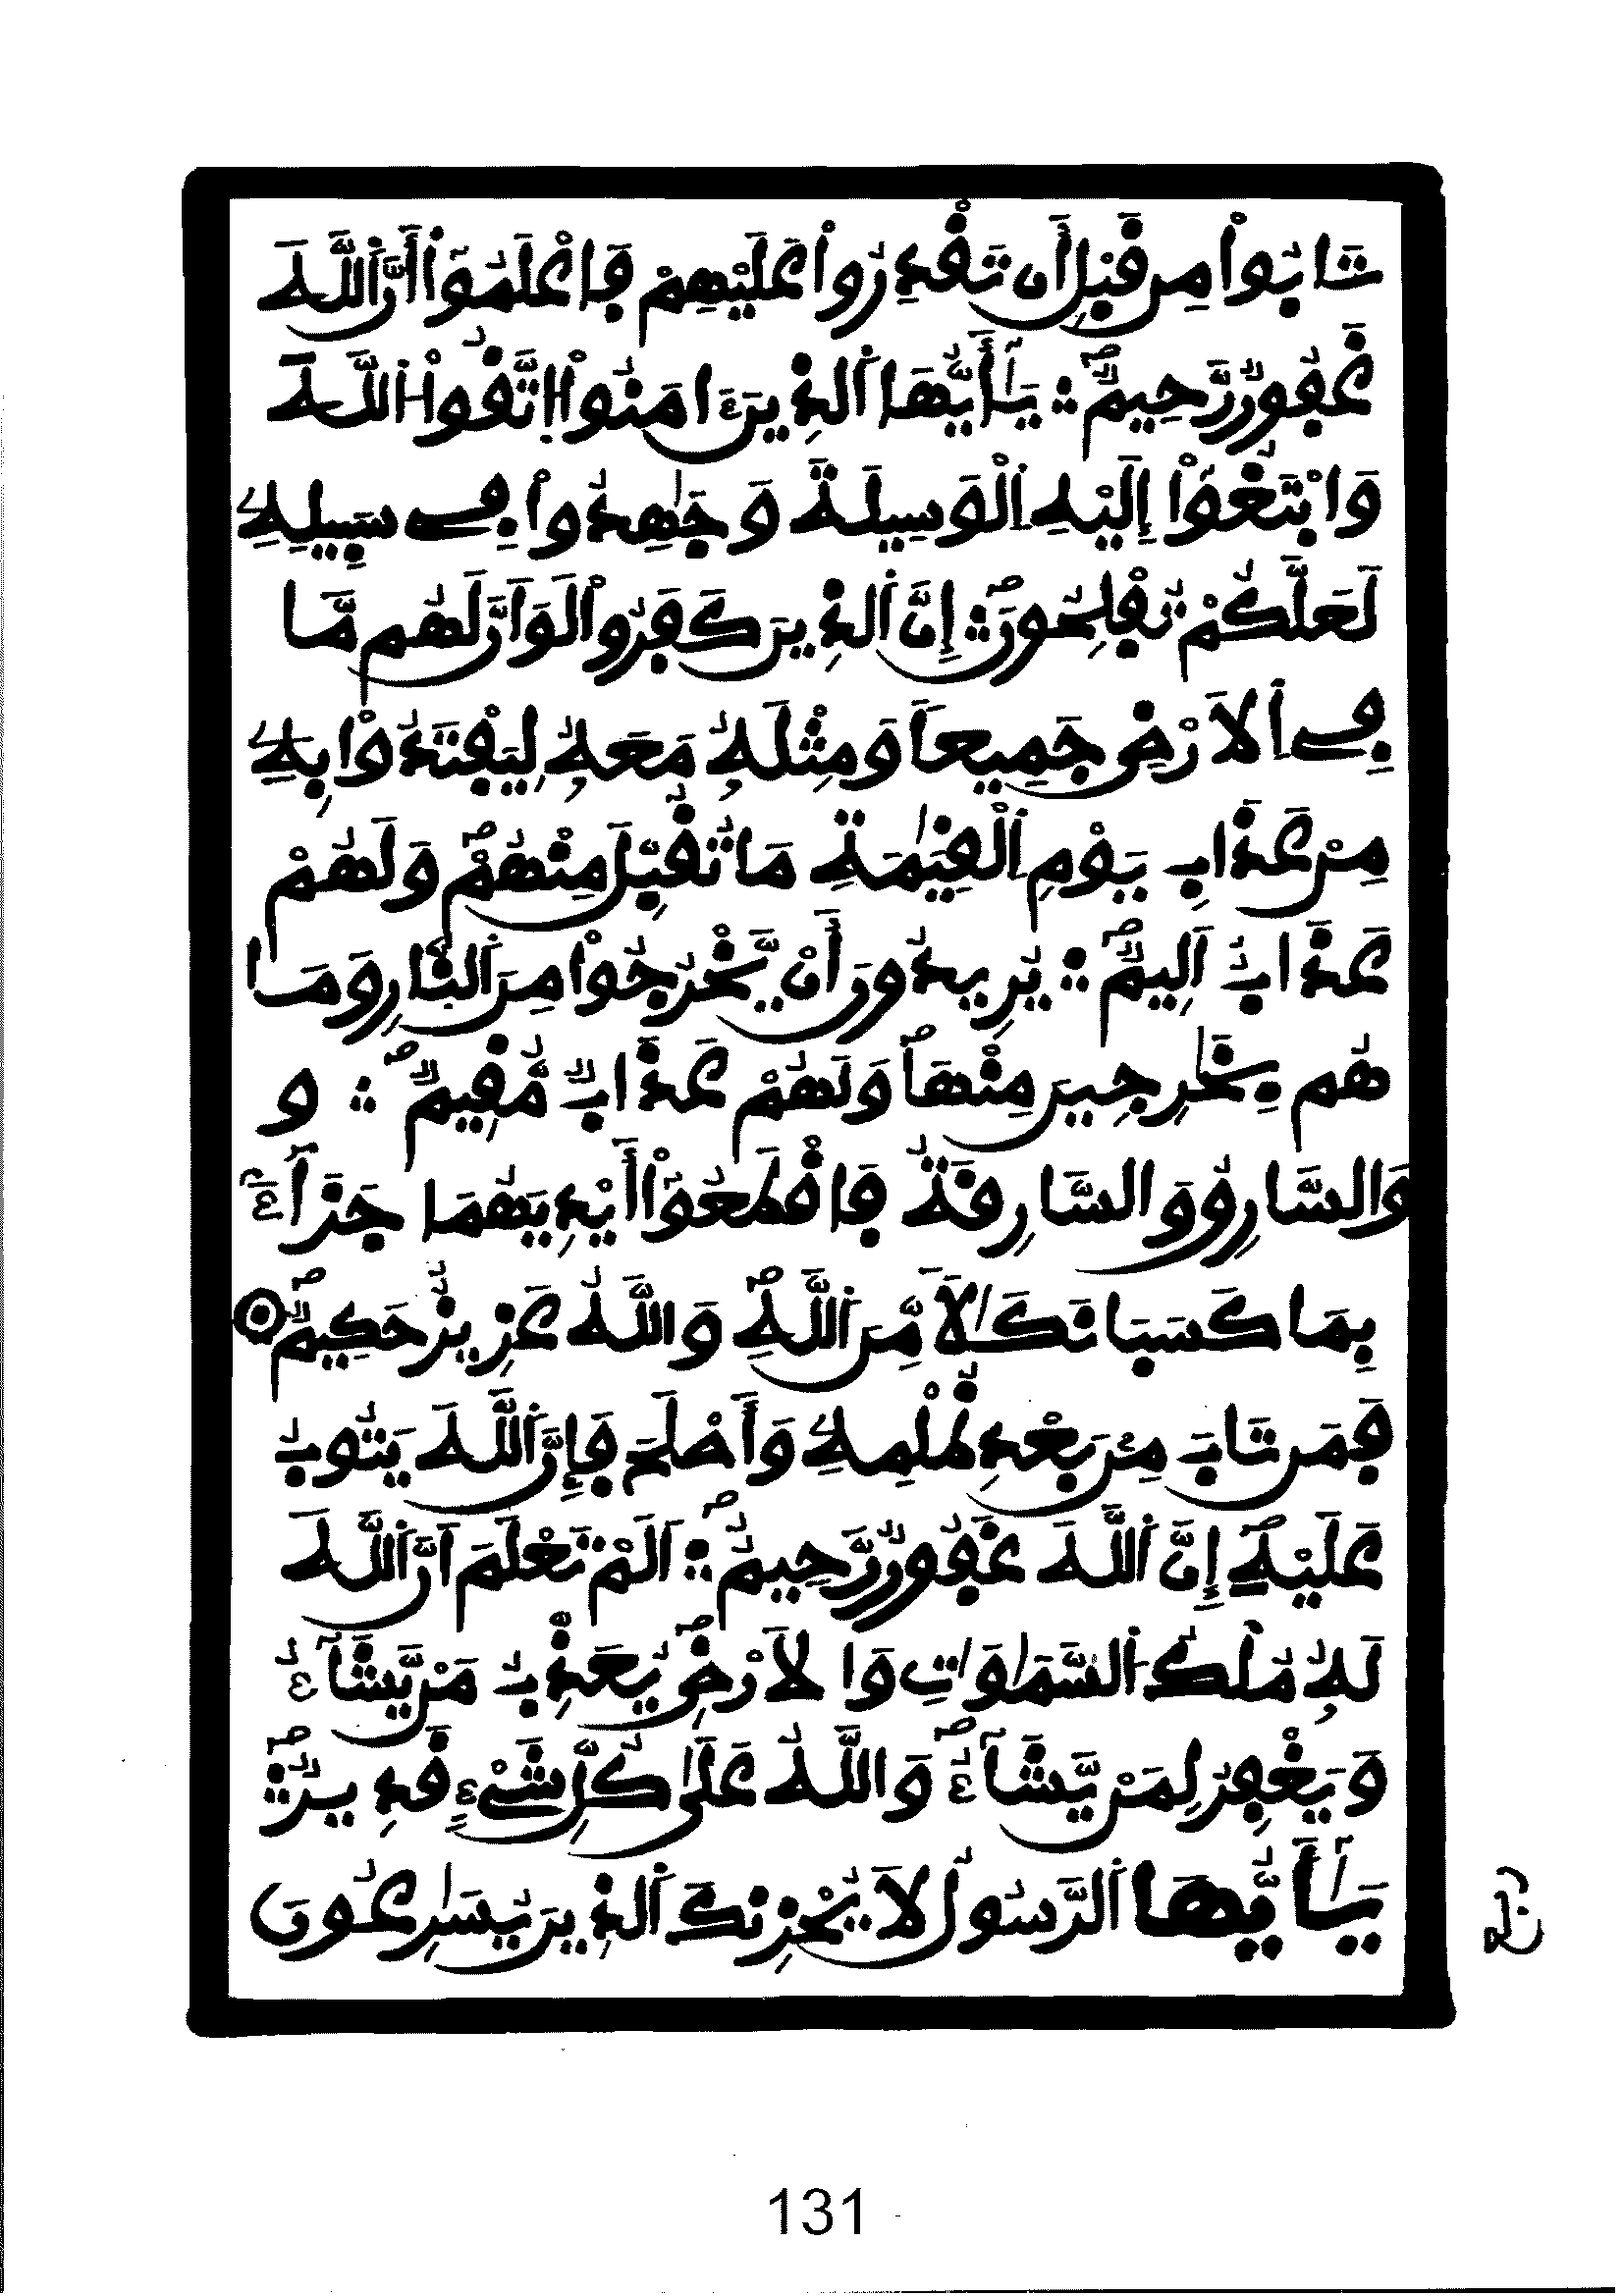 تَابُواْ مِن قَبْلِ أَن تَقْدِرُواْ عَلَيْهِمْ فَاعْلَمُوٓاْ أَنَّ اَللَّهَ
غَفُورٌ رَّحِيمٌ يَٰٓأَيُّهَا اَلذِينَ ءَامَنُواْ اُتَّقُواْ اُللَّهَ
وَابْتَغُوٓاْ إِلَيْهِ اِلْوَسِيلَةَ وَجَٰهِدُواْ فِے سَبِيلِهِۦ
لَعَلَّكُمْ تُفْلِحُونَ إِنَّ اَلذِينَ كَفَرُواْ لَوَ اَنَّ لَهُم مَّا
فِے اِلَارْضِ جَمِيعاً وَمِثْلَهُۥ مَعَهُۥ لِيَفْتَدُواْ بِهِۦ
مِنْ عَذَابِ يَوْمِ اِلْقِيَٰمَةِ مَا تُقُبِّلَ مِنْهُمْ وَلَهُمْ
عَذَابٌ اَلِيمٌ يُرِيدُونَ أَنْ يَّخْرُجُواْ مِنَ اَلنّ۪ارِ وَمَا
هُم بِخَٰرِجِينَ مِنْهَا وَلَهُمْ عَذَابٌ مُّقِيمٌ و
وَالسَّارِقُ وَالسَّارِقَةُ فَاقْطَعُوٓاْ أَيْدِيَهُمَا جَزَآءَۢ
بِمَا كَسَبَا نَكَٰلاً مِّنَ اَللَّهِ وَاللَّهُ عَزِيزٌ حَكِيمٌ
فَمَن تَابَ مِنۢ بَعْدِ ظُلْمِهِۦ وَأَصْلَحَ فَإِنَّ اَللَّهَ يَتُوبُ
عَلَيْهِ إِنَّ اَللَّهَ غَفُورٌ رَّحِيمٌ اَلَمْ تَعْلَمَ اَنَّ اَللَّهَ
لَهُۥ مُلْكُ اُلسَّمَٰوَٰتِ وَالَارْضِ يُعَذِّبُ مَنْ يَّشَآءُ
وَيَغْفِرُ لِمَنْ يَّشَآءُ وَاللَّهُ عَلَىٰ كُلِّ شَےْءٍ قَدِيرٌ
يَٰٓأَيُّهَا اَلرَّسُولُ لَا يُحْزِنكَ اَلذِينَ يُسَٰرِعُونَ
131